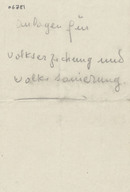 +6781
Anlagen für
Volkserziehung und
Volks sanierung